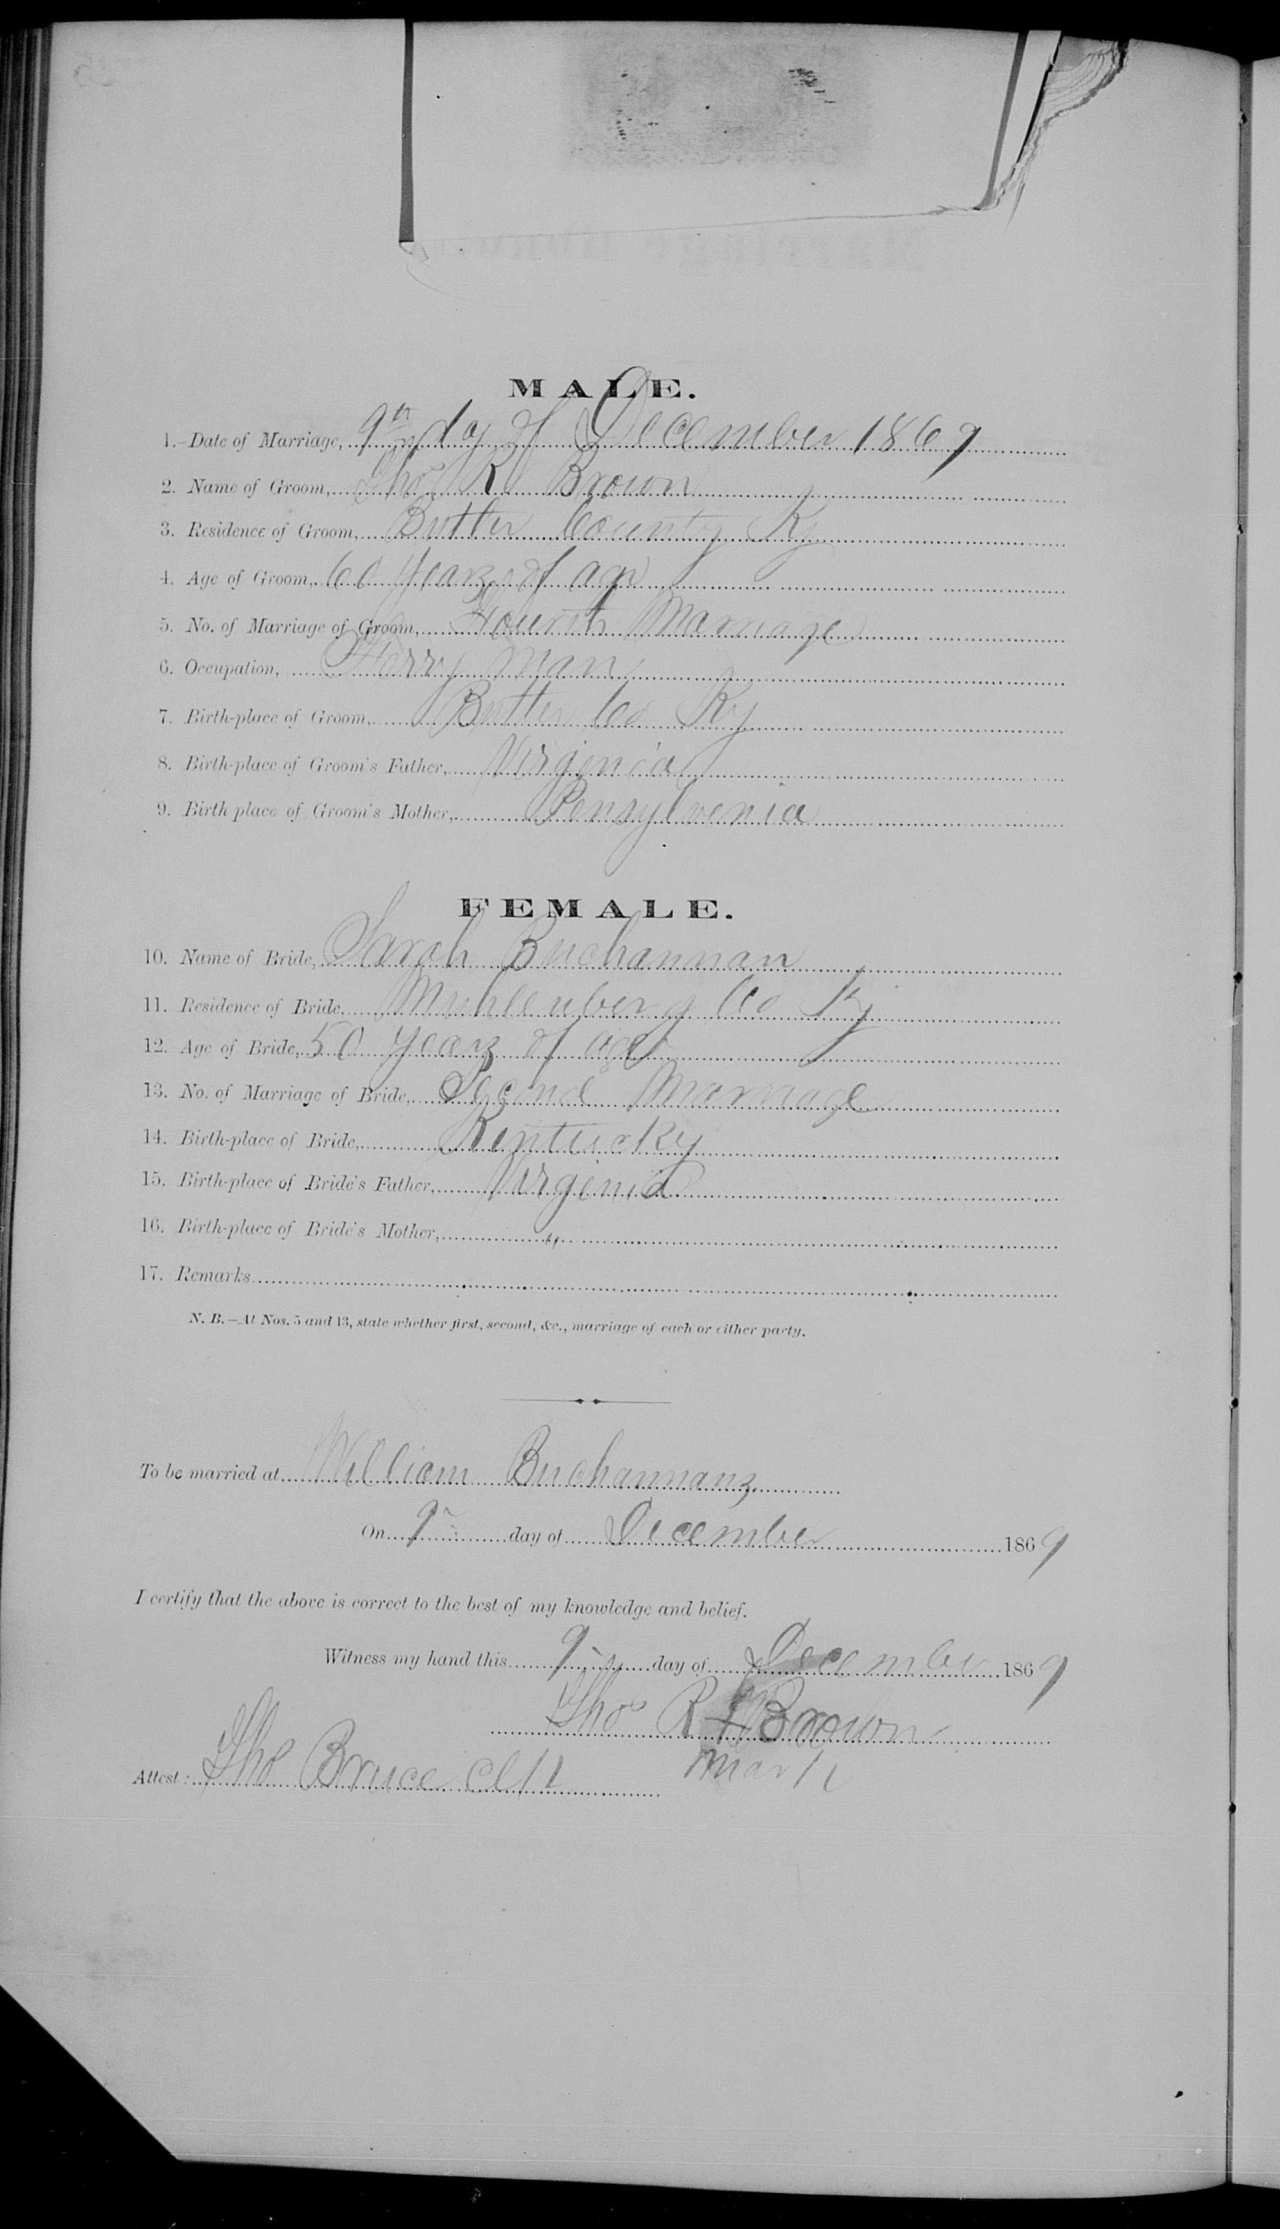 MALE.
1.—Date of Marriage, 9th day of December 1869
2. Name of Groom, Thos R Brown
3. Residence of Groom, Butler County Ky
4. Age of Groom, 60 Years of age
5. No. of Marriage of Groom, Fourth Marriage
6. Occupation, Ferry man
7. Birth-place of Groom, Butler Co Ky
8. Birth-place of Groom's Father, Virginia
9. Birth place of Groom's Mother, Pensylvenia
FEMALE.
10. Name of Bride, Sarah Buchannan
11. Residence of Bride, Muhlenberg Co Ky
12. Age of Bride, 50 years of age
13. No. of Marriage of Bride, Second Marriage
14. Birth-place of Bride, Kentucky
15. Birth-place of Bride's Father, Virginia
16. Birth-place of Bride's Mother, "
17. Remarks
N. B.—At Nos. 5 and 13, state whether first, second, &c., marriage of each or either party.
To be married at William Buchannans
On 9th day of December 1869
I certify that the above is correct to the best of my knowledge and belief.
Witness my hand this 9 day of December 1869
Thos R + Brown
mark
Attest: Thos Bruce clk